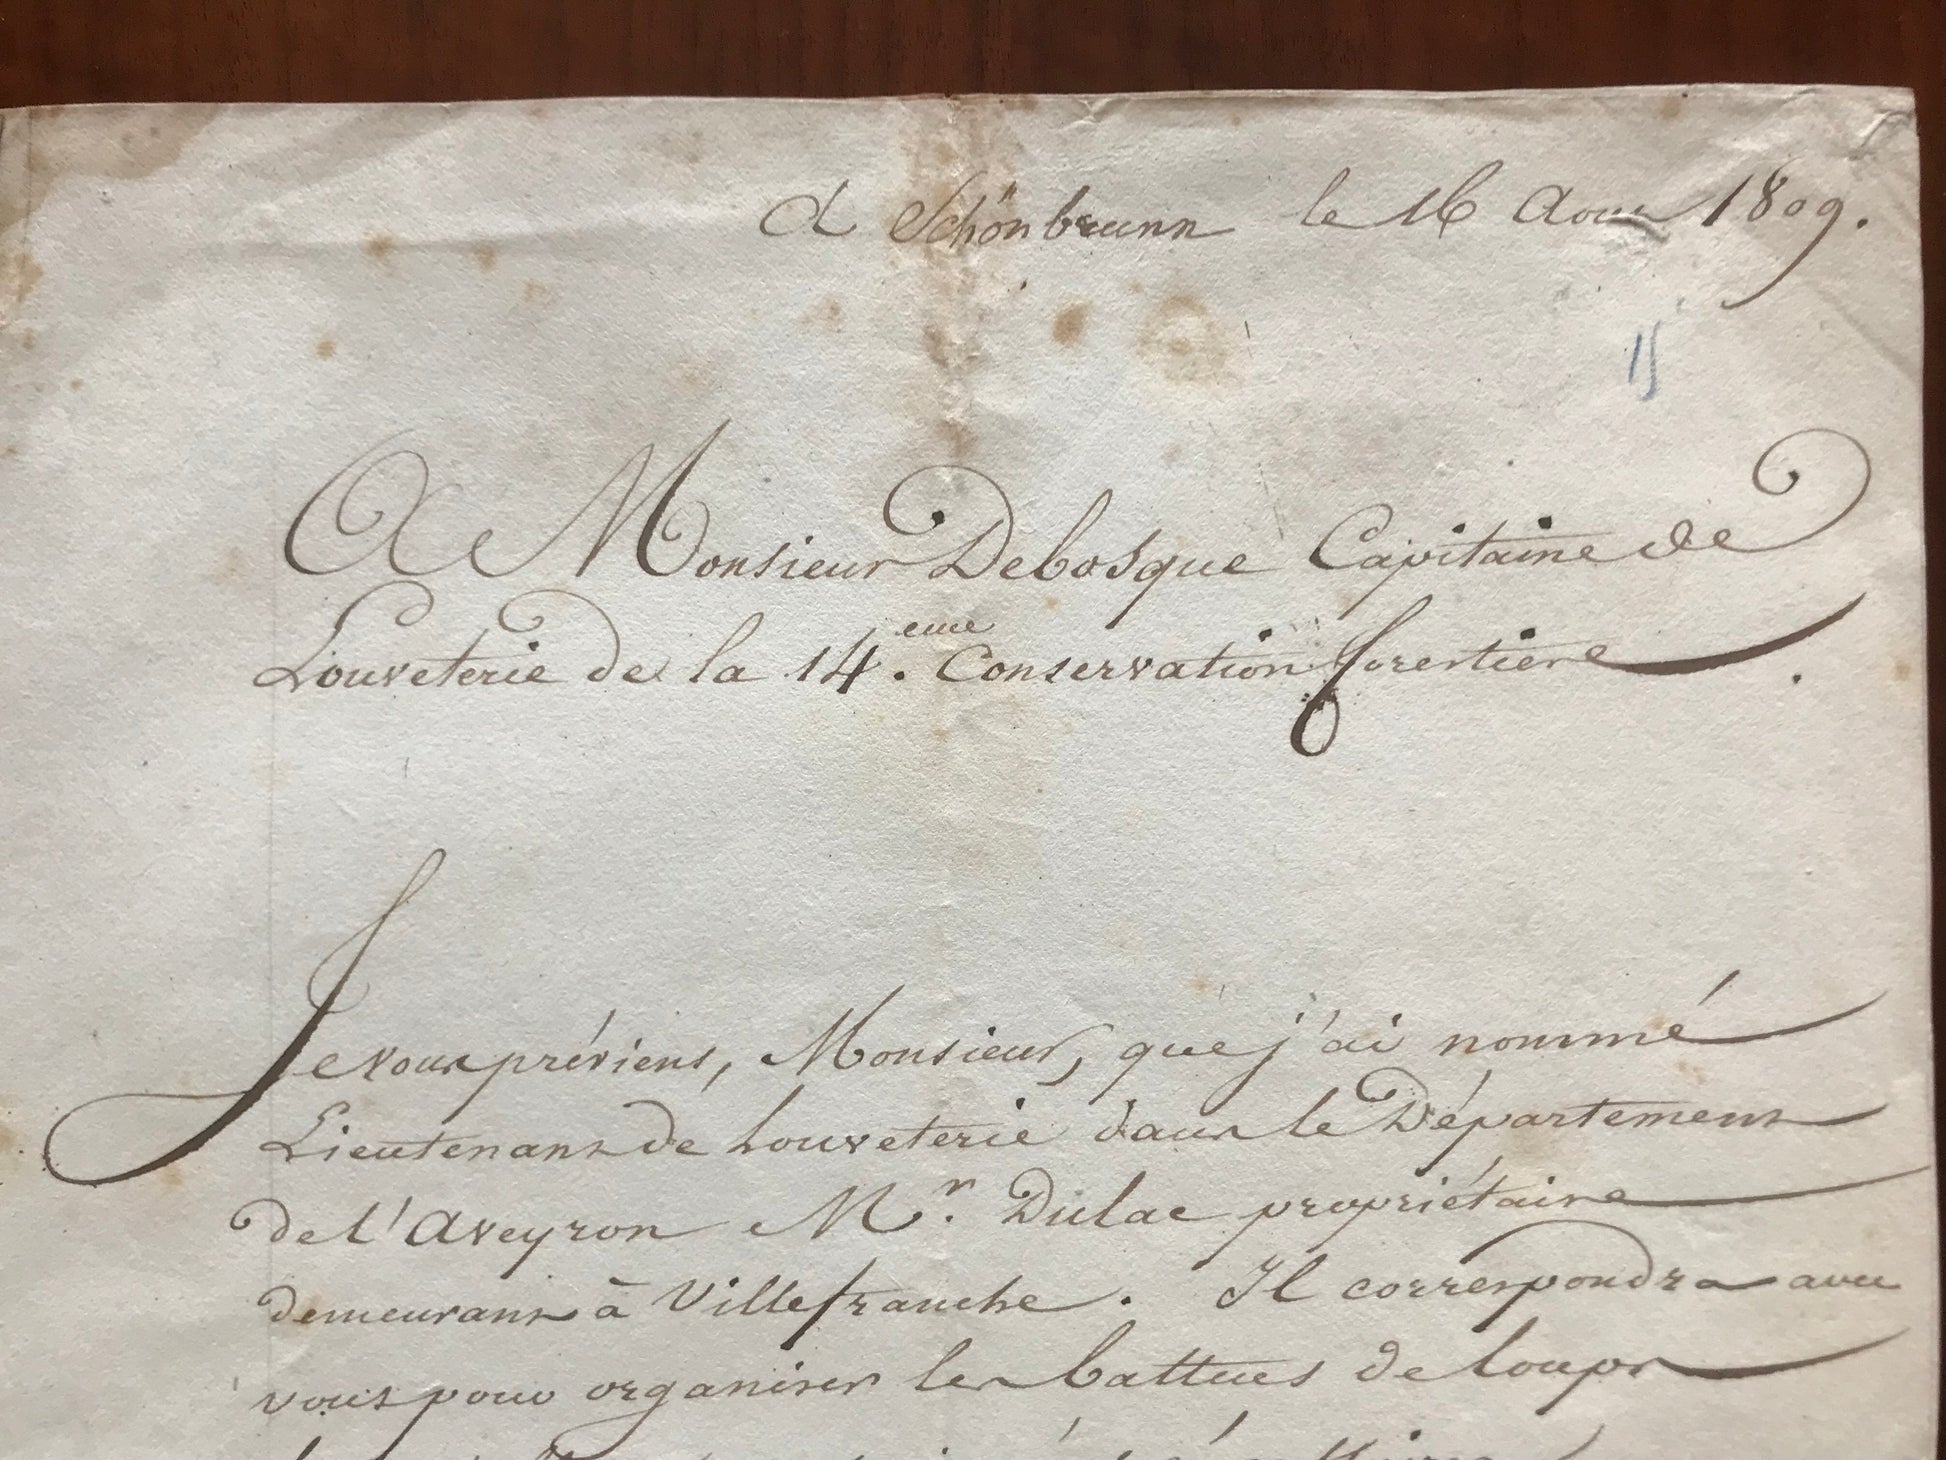 A Schönbrunn le 16 Aout 1809.
15
A Monsieur Debosque Capitaine de
Louveterie de la 14.eme Conservation forestiere.
Je vous préviens, Monsieur, que j'ai nommé
Lieutenant de Louveterie dans le Département
de l'Aveyron Mr. Dulac propriétaire
demeurant à Villefranche. Il correspondra avec
vous pour organiser les battues de loups